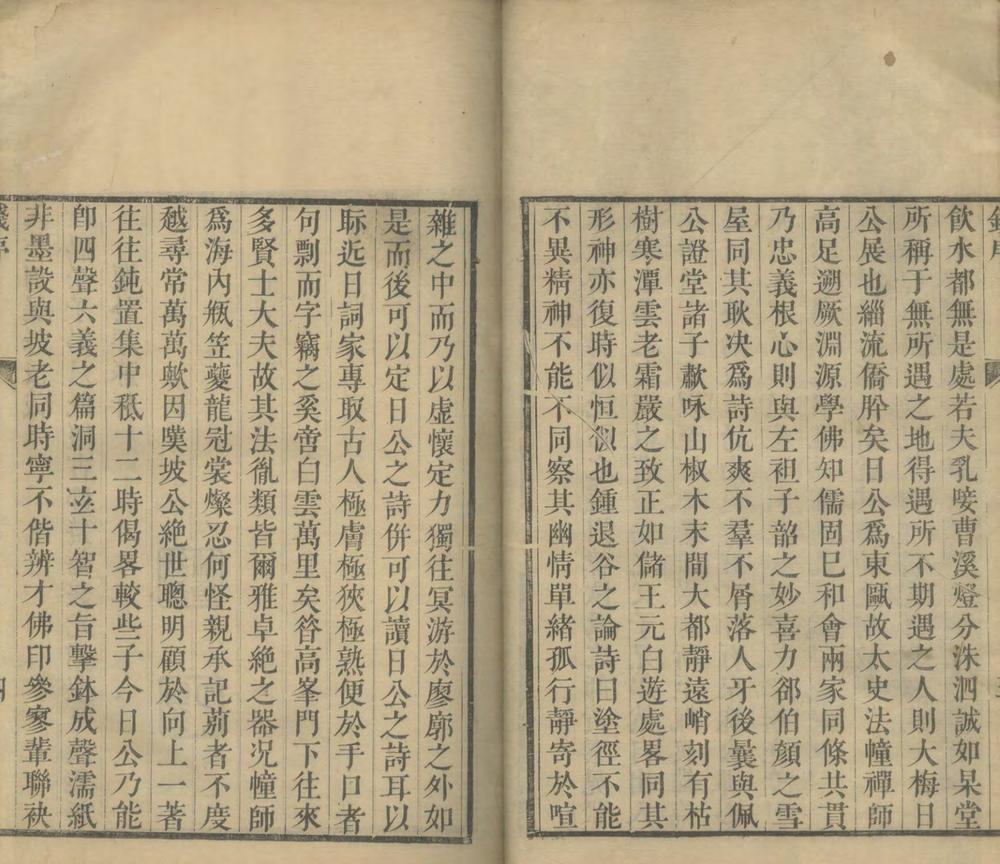 飲水都無是處若夫乳嘜曹溪燈分洙泗誠如杲堂
所稱于無所遇之地得遇所不期遇之人則大梅日
公展也緇流僑肸矣日公為東甌故太史法幢禪師
高足遡厥淵源學佛知儒固巳和會兩家同條共貫
乃忠義根心則與左袒子韶之妙喜力郤伯顏之雪
屋同其耿决為詩伉爽不羣不屑落人牙後曩與佩
公證堂諸子歗咏山椒木末間大都靜遠峭刻有枯
樹寒潭雲老霜嚴之致正如儲王元白遊處畧同其
形神亦復時似恒似也鍾退谷之論詩曰塗徑不能
不異精神不能不同察其幽情單緒孤行靜寄於喧
雜之中而乃以虛懷定力獨往冥游於廖廓之外如
是而後可以定日公之詩併可以讀日公之詩耳以
眎近日詞家專取古人極膚極狹極熟便於手口者
句剽而字竊之奚啻白雲萬里矣昝高峯門下往來
多賢士大夫故其法胤類皆爾雅卓絶之器况幢師
為海內瓶笠夔龍冠裳燦忍何怪親承記莂者不度
越尋常萬萬歟因嘆坡公絶世聰明顧於向上一著
往往鈍置集中秪十二時偈畧較些子今日公乃能
卽四聲六義之篇洞三玄十智之旨擊鉢成聲濡紙
非墨設與坡老同時寧不偕辨才佛印參寥輩聯袂